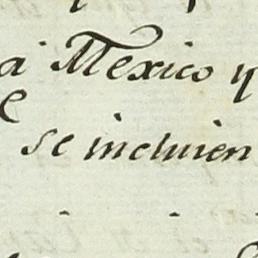 a Mexico y
se incluien